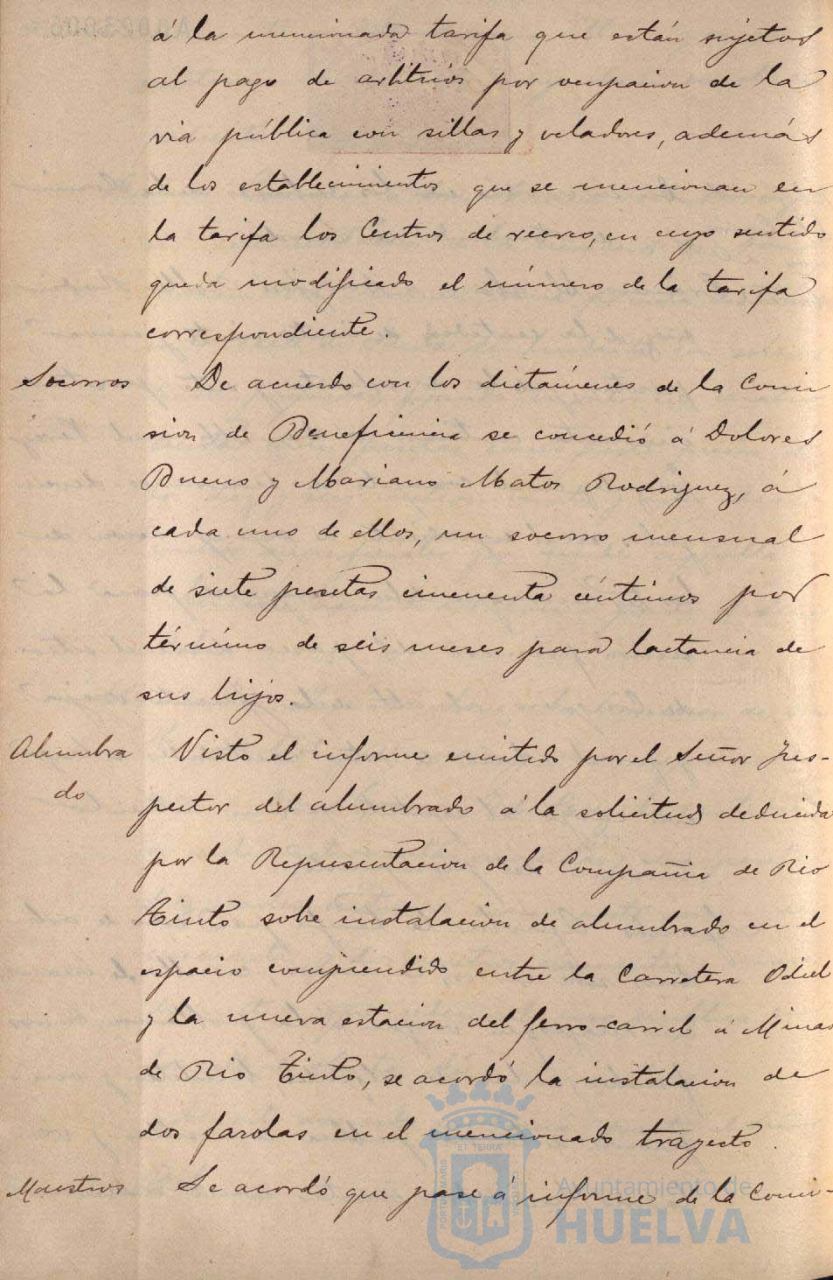 á la mencionada tarifa que están sujetos
al pago de arbitrios por ocupacion de la
via pública con sillas y veladores, además
de los establecimientos que se mencionan en
la tarifa los Centros de recreo, en cuyo sentido
queda modificado el número de la tarifa
correspondiente.
Socorros De acuerdo con los dictámenes de la Comi
sion de Beneficencia se concedió á Dolores
Bueno y Mariano Matos Rodriguez, á
cada uno de ellos, un socorro mensual
de siete pesetas cincuenta céntimos por
término de seis meses para lactancia de
sus hijos.
Alumbra Visto el informe emitido por el Señor Ins-
do pector del alumbrado á la solicitud deducida
por la Representacion de la Compañia de Rio
Tinto sobre instalacion de alumbrado en el
espacio comprendido entre la Carretera Odiel
y la nueva estacion del ferro-carril á Minas
de Rio Tinto, se acordó la instalacion de
dos farolas en el mencionado trayecto.
Maestros Se acordó que pase á informe de la Comi-
Ayuntamiento de
HUELVA